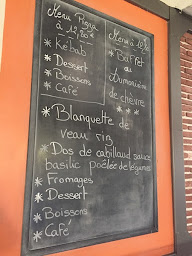 Menu Pizza
à 12,80€
* Kebab
* Dessert
* Boissons
* Café
Menu à
* Buffet
ou
Aumonière
de chèvre
* * *
* Blanquette de
veau riz
* Dos de cabillaud sauce
basilic poêlée de légumes
* Fromages
* Dessert
* Boissons
* Café